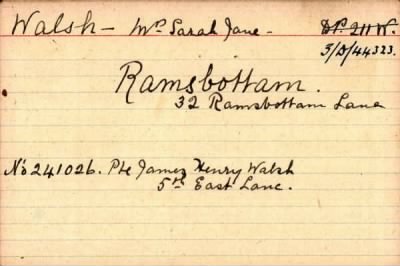 Walsh - Mrs Sarah Jane - D.P. 211 W.
3/D/44323.
Ramsbottom.
32 Ramsbottom Lane
No 241026. Pte James Henry Walsh
5th East Lanc.